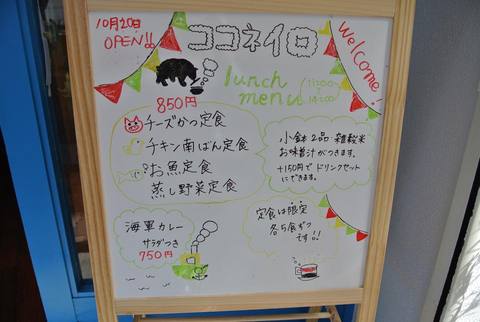 10月20日
OPEN!!
ココネイロ
Welcome!
lunch
menu
11:00〜
14:00
850円
チーズかつ定食
チキン南ばん定食
お魚定食
蒸し野菜定食
小鉢2品 雑穀米
お味噌汁がつきます。
+150円で ドリンクセット
にできます。
海軍カレー
サラダつき
750円
定食は限定
各5食ずつ
です!!